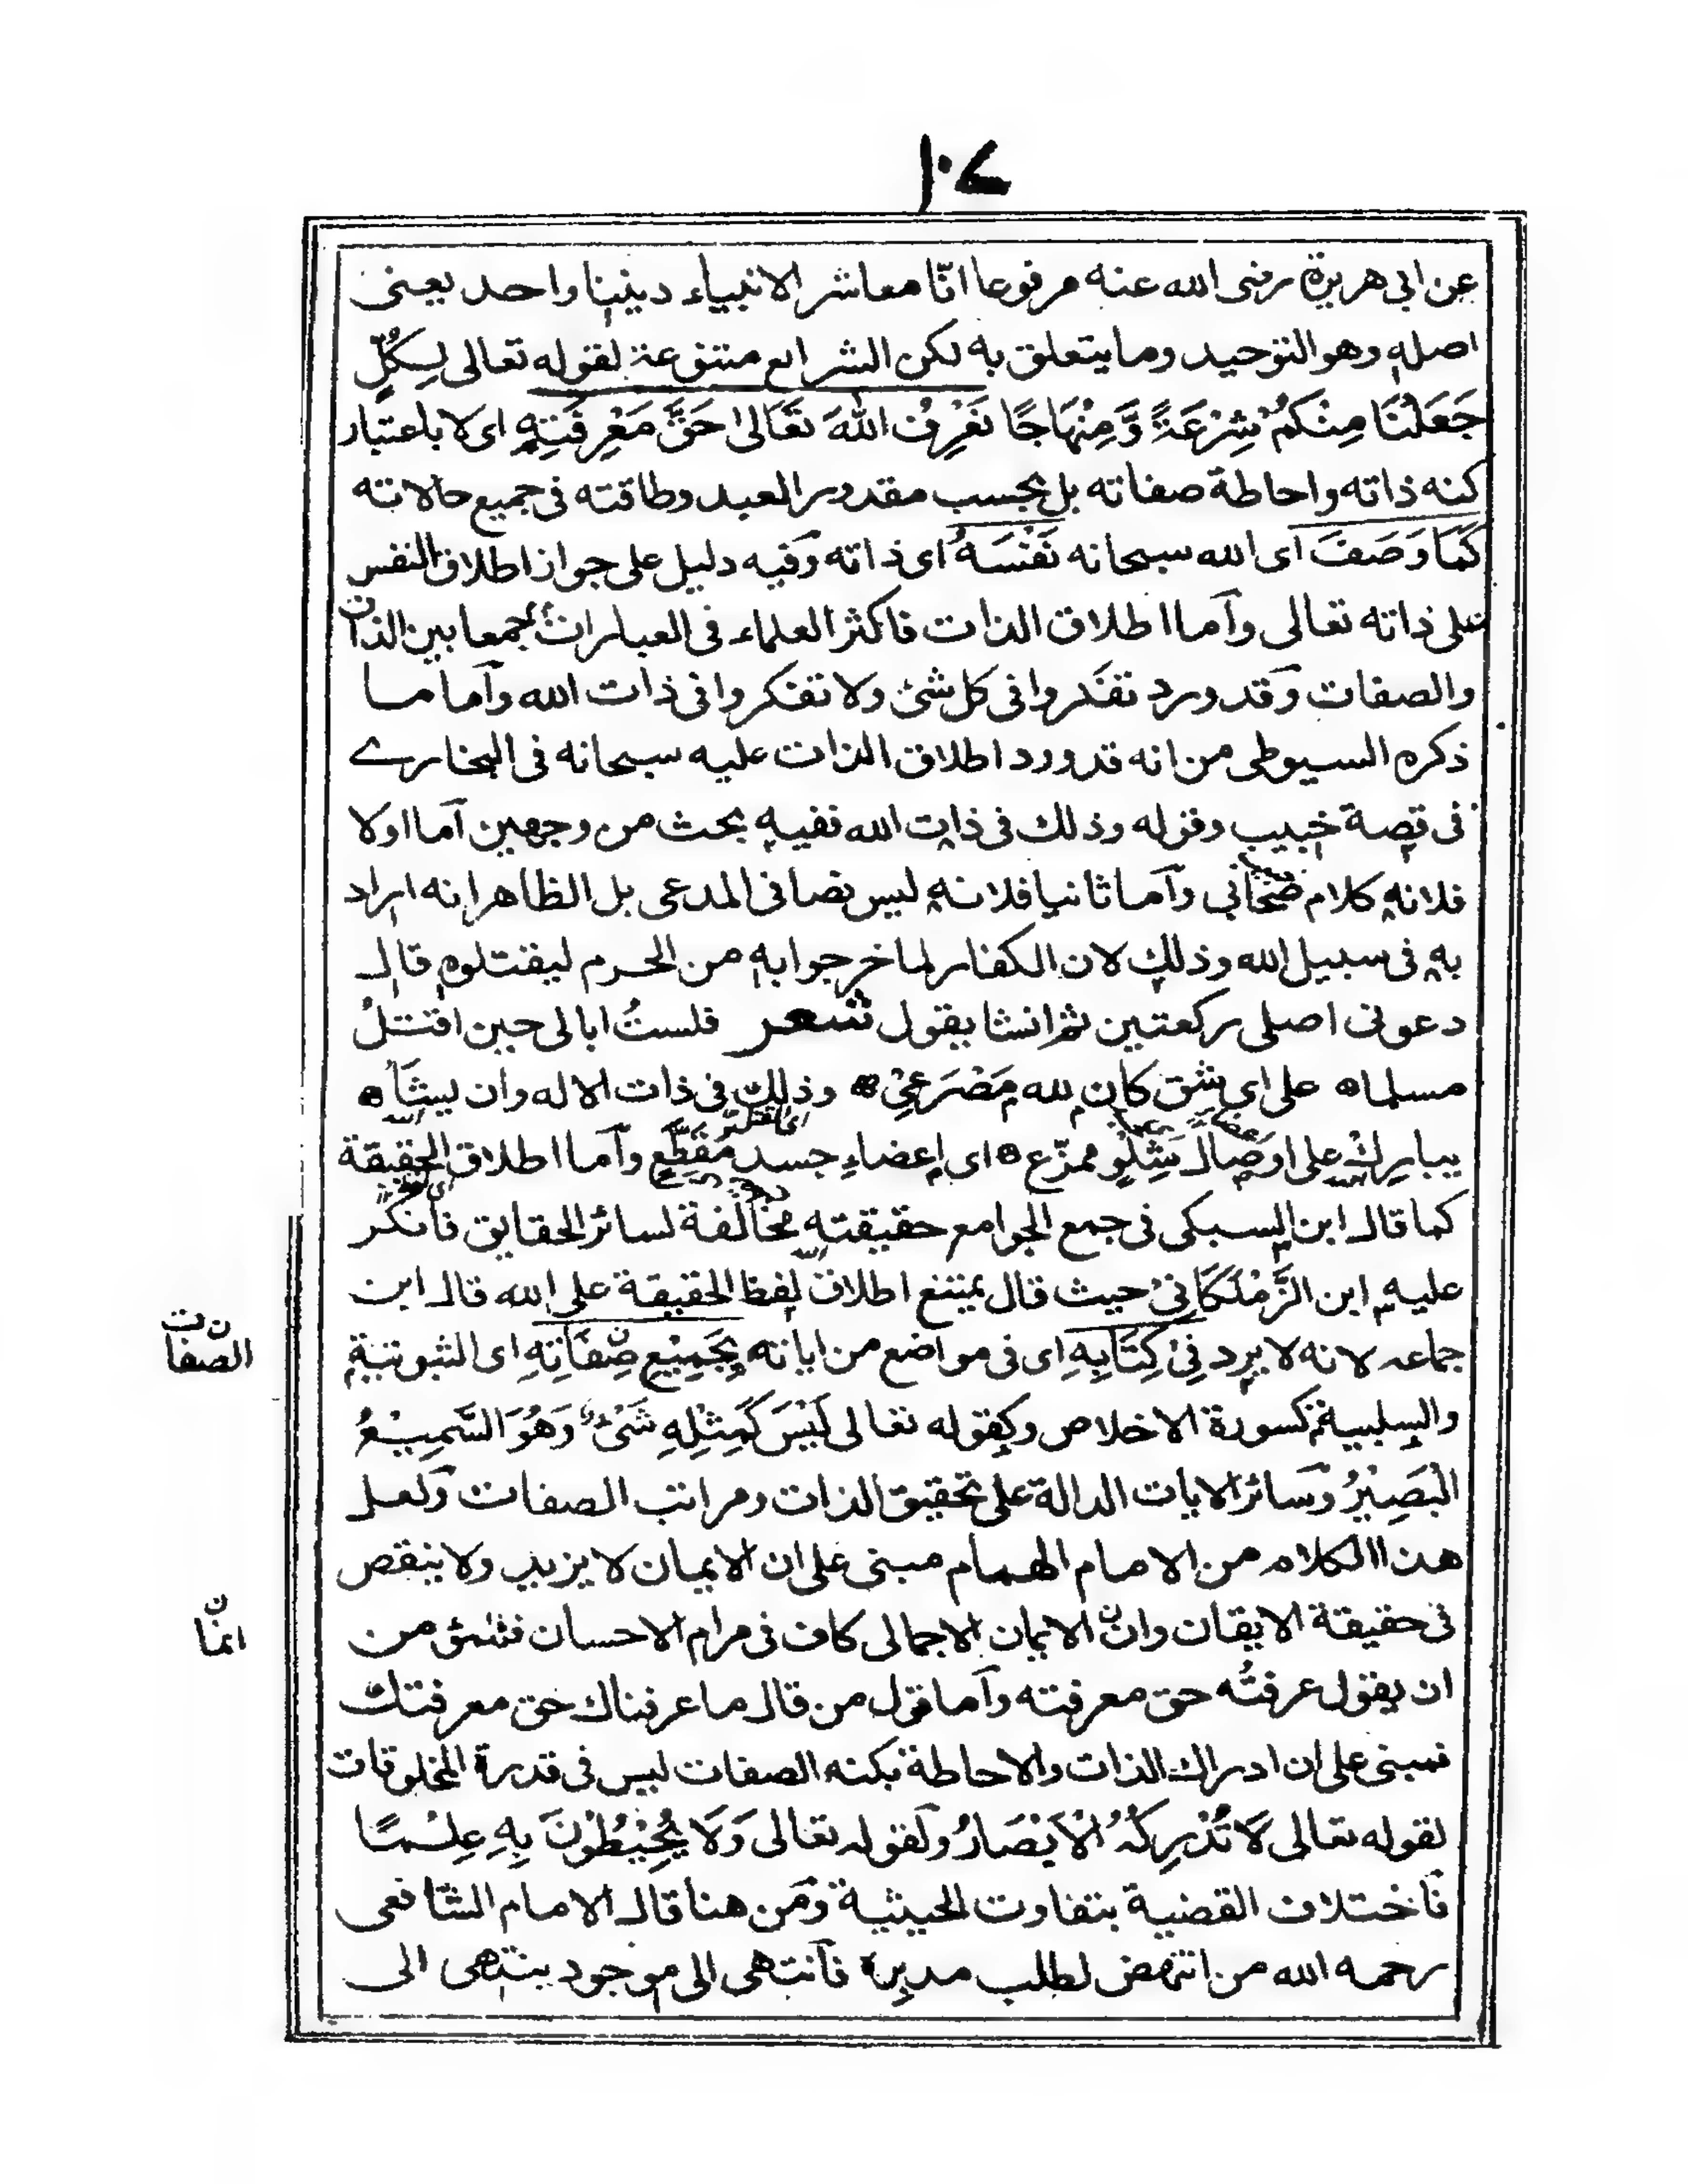 ١٠٧
عن ابى هريرة رضى الله عنه مرفوعا انّا معاشر الانبياء ديننا واحد يعنى
اصله وهو التوحيد وما يتعلق به لكن الشرايع متنوعة لقوله تعالى لِكُلٍّ
جَعَلْنَا مِنْكُمْ شِرْعَةً وَّمِنْهَاجًا نَعْرِفُ اللّٰهَ تَعَالٰى حَقَّ مَعْرِفَتِهٖ اى لا باعتبار
كنه ذاته واحاطة صفاته بل بحسب مقدور العبد وطاقته فى جميع حالاته
كَمَا وَصَفَ اى الله سبحانه نَفْسَهُ اى ذاته وفيه دليل على جواز اطلاق النفس
على ذاته تعالى وآما اطلاق الذات فاكثر العلماء فى العبارات جمعا بين الذات
والصفات وقد ورد تفكروا فى كل شئ ولا تفكروا فى ذات الله وآما ما
ذكره السيوطى من انه قد ورد اطلاق الذات عليه سبحانه فى البخارے
فى قصة خبيب وقوله وذلك فى ذات الله ففيه بحث من وجهين آما اولا
فلانه كلام صحابى وآما ثانيا فلانه ليس نصا فى المدعى بل الظاهر انه اراد
به فى سبيل الله وذلك لان الكفار لما خرجوا به من الحرم ليقتلوه قال
دعونى اصلى ركعتين ثم انشا يقول شعر فلستُ ابالى حين اقتتلُ
مسلما ه على اى شق كان لله مَصْرَعِىْ ه وذلك فى ذات الاله وان يشأ ه
يبارك على اوصال شِلْوٍ ممزّع ه اى اعضاءِ جسد مقطّع وآما اطلاق الحقيقة
كما قال ابن السبكى فى جمع الجوامع حقيقته مخالفة لسائر الحقايق فانكر
عليه ابن الزَّمْلَكَانِىْ حيث قال يمتنع اطلاق لفظ الحقيقة على الله قال ابن
جماعه لانه لا يرد فِىْ كِتَابِهِ اى فى مواضع من اياته بِجَمِيْعِ صِفَاتِهِ اى الثبوتية
والسلبية كسورة الاخلاص وكقوله تعالى لَيْسَ كَمِثْلِهِ شَىْءٌ وَهُوَ السَّمِيْعُ
الْبَصِيْرُ وسائر الايات الدالة على تحقيق الذات ومراتب الصفات ولعل
هذا الكلام من الامام الهمام مبنى على ان الايمان لا يزيد ولا ينقص
فى حقيقة الايقان وان الايمان الاجمالى كاف فى مرام الاحسان فشئ من
ان يقول عرفتُه حق معرفته وآما قول من قال ما عرفناك حق معرفتك
فمبنى على ان ادراك الذات والاحاطة بكنه الصفات ليس فى قدرة المخلوقات
لقوله تعالى لَا تُدْرِكُهُ الْاَبْصَارُ ولقوله تعالى وَلَا يُحِيْطُوْنَ بِهِ عِلْمًا
فاختلاف القضية بتفاوت الحيثية ومن هنا قال الامام الشافعى
رحمه الله من انتهض لطلب مدبره فانتهى الى موجود ينتهى الى
الصفات